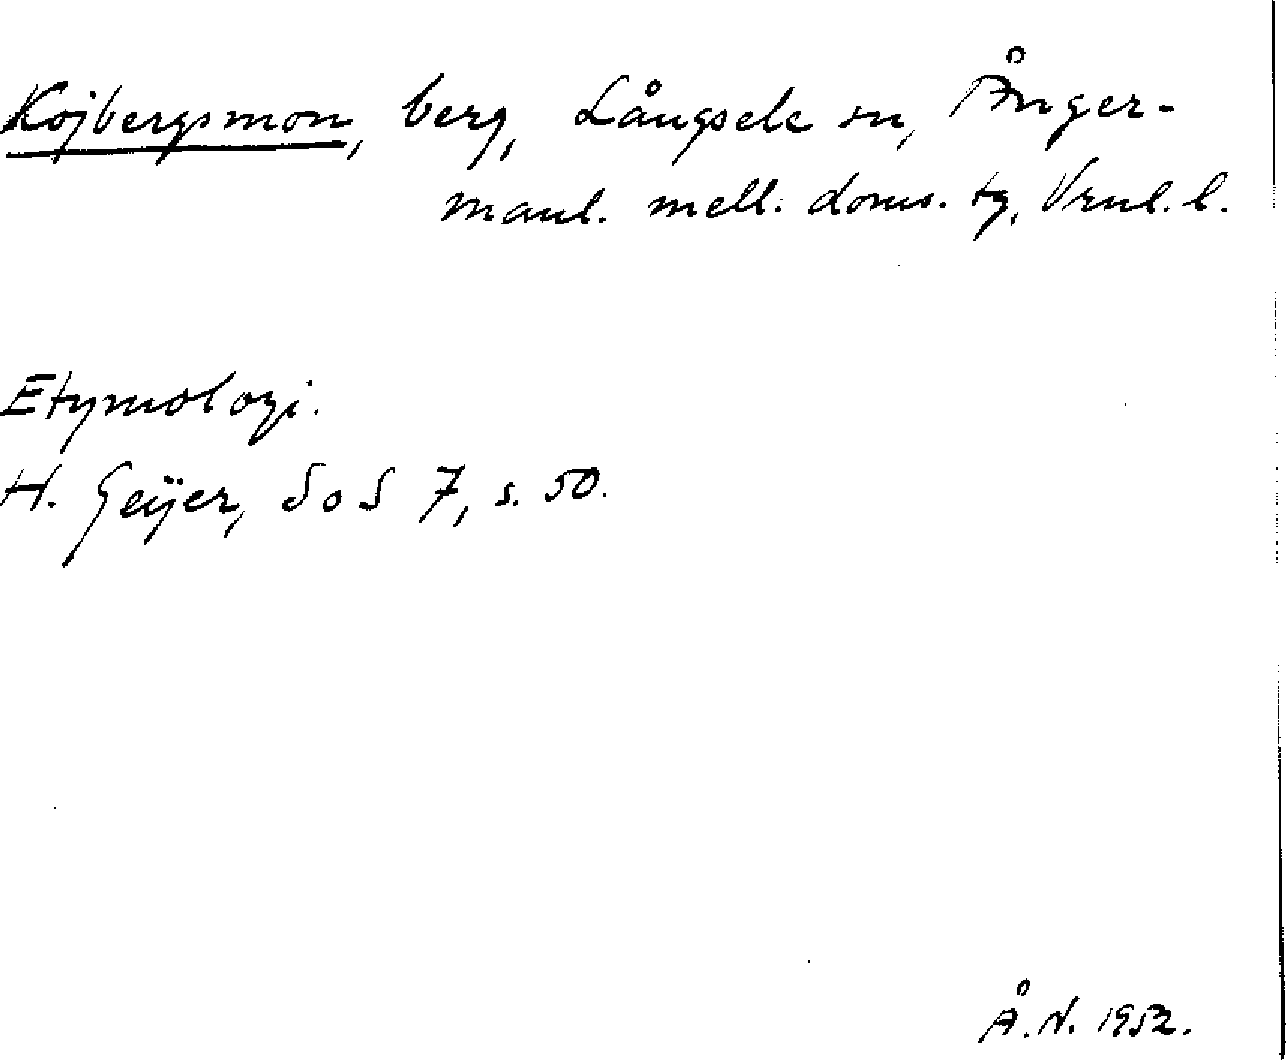 Kojbergsmon, berg, Långsele sn, Ånger-
manl. mell. doms. tg, Vrnl. l.
Etymologi.
H. Geijer, SoS 7, s. 50.
Å. N. 1952.